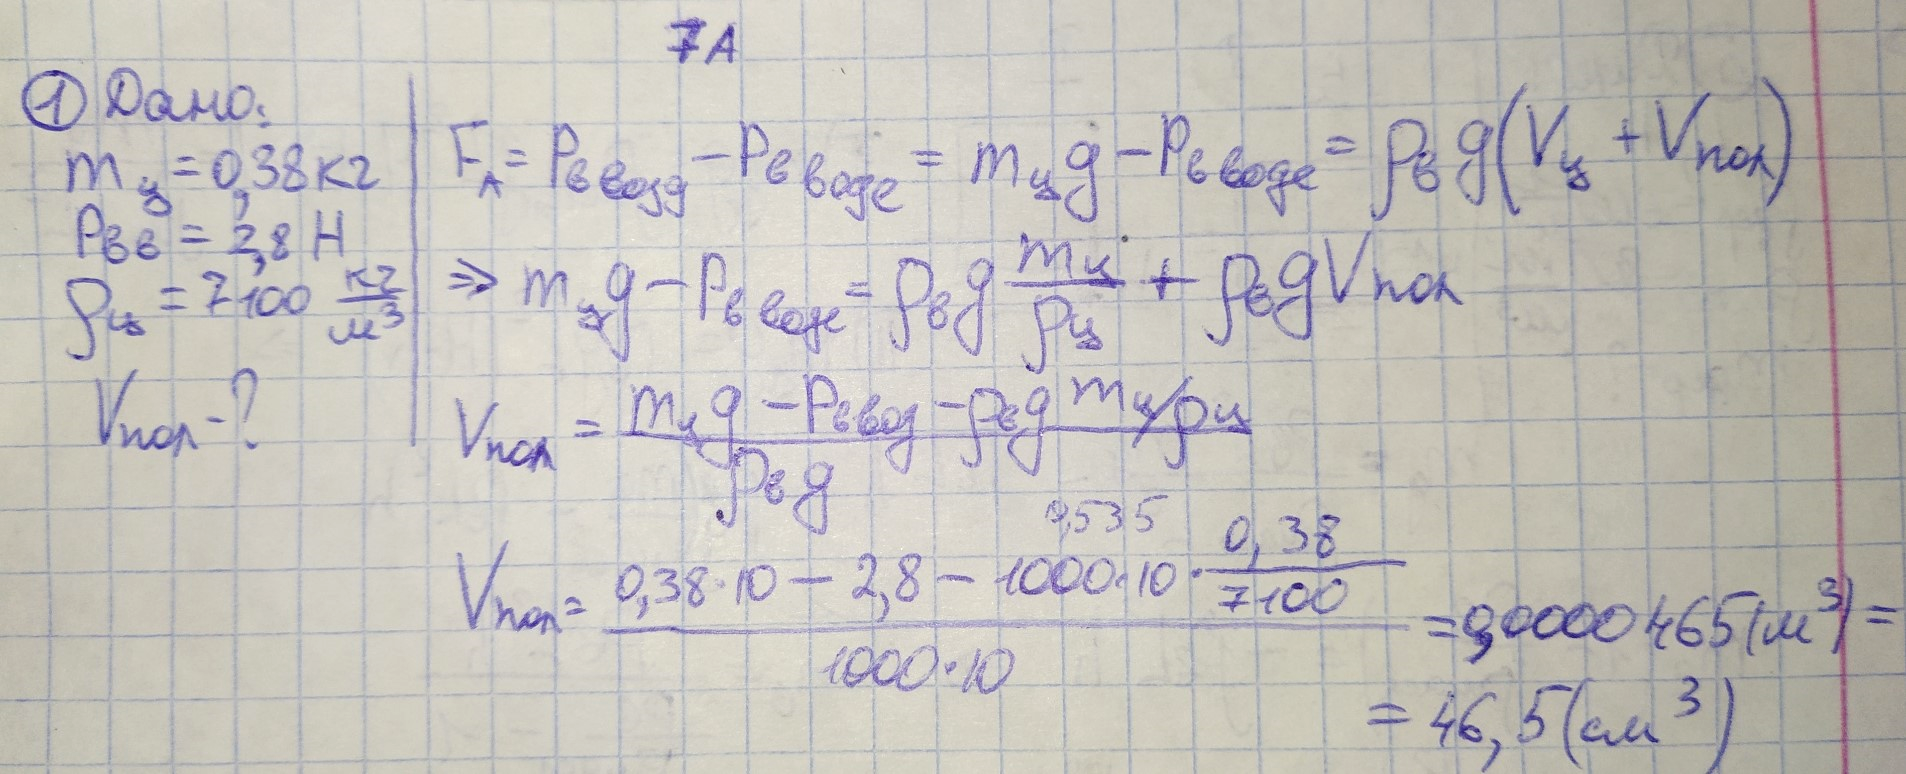 7А
① Дано:
m_ц = 0,38 кг
P_в в = 2,8 Н
ρ_ц = 7100 кг/м³
V_пол - ?
F_A = P_в возд − P_в воде = m_ц g − P_в воде = ρ_в g (V_ц + V_пол)
⇒ m_ц g − P_в воде = ρ_в g m_ц/ρ_ц + ρ_в g V_пол
V_пол = (m_ц g − P_в воз − ρ_в g m_ц/ρ_ц)/(ρ_в g)
0,535
V_пол = (0,38·10 − 2,8 − 1000·10·0,38/7100)/(1000·10) = 0,0000465 (м³) =
= 46,5 (см³)